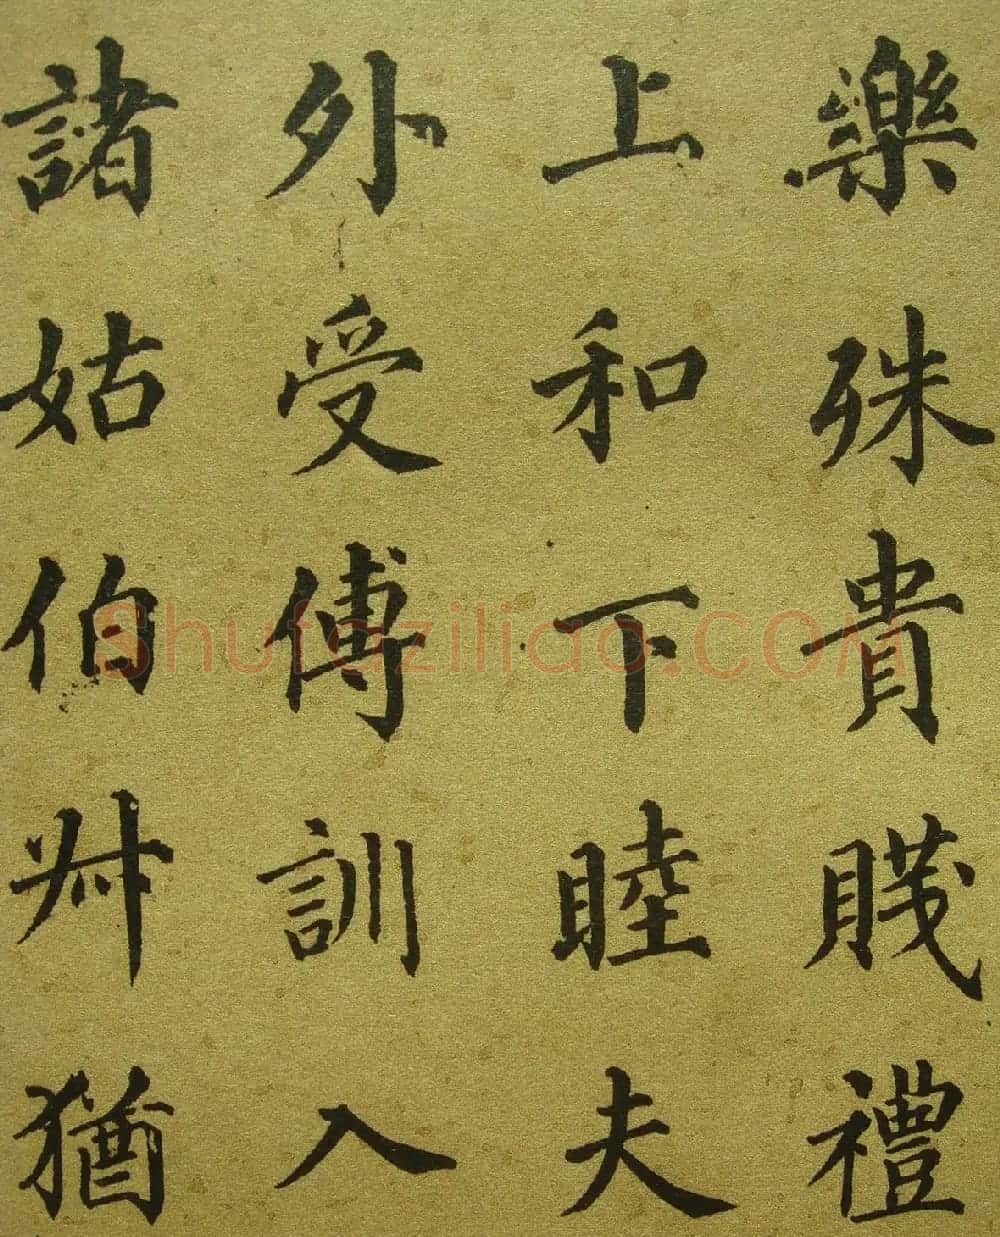 樂殊貴賤禮
上和下睦夫
外受傅訓入
諸姑伯叔猶
Shufaziliao.COM